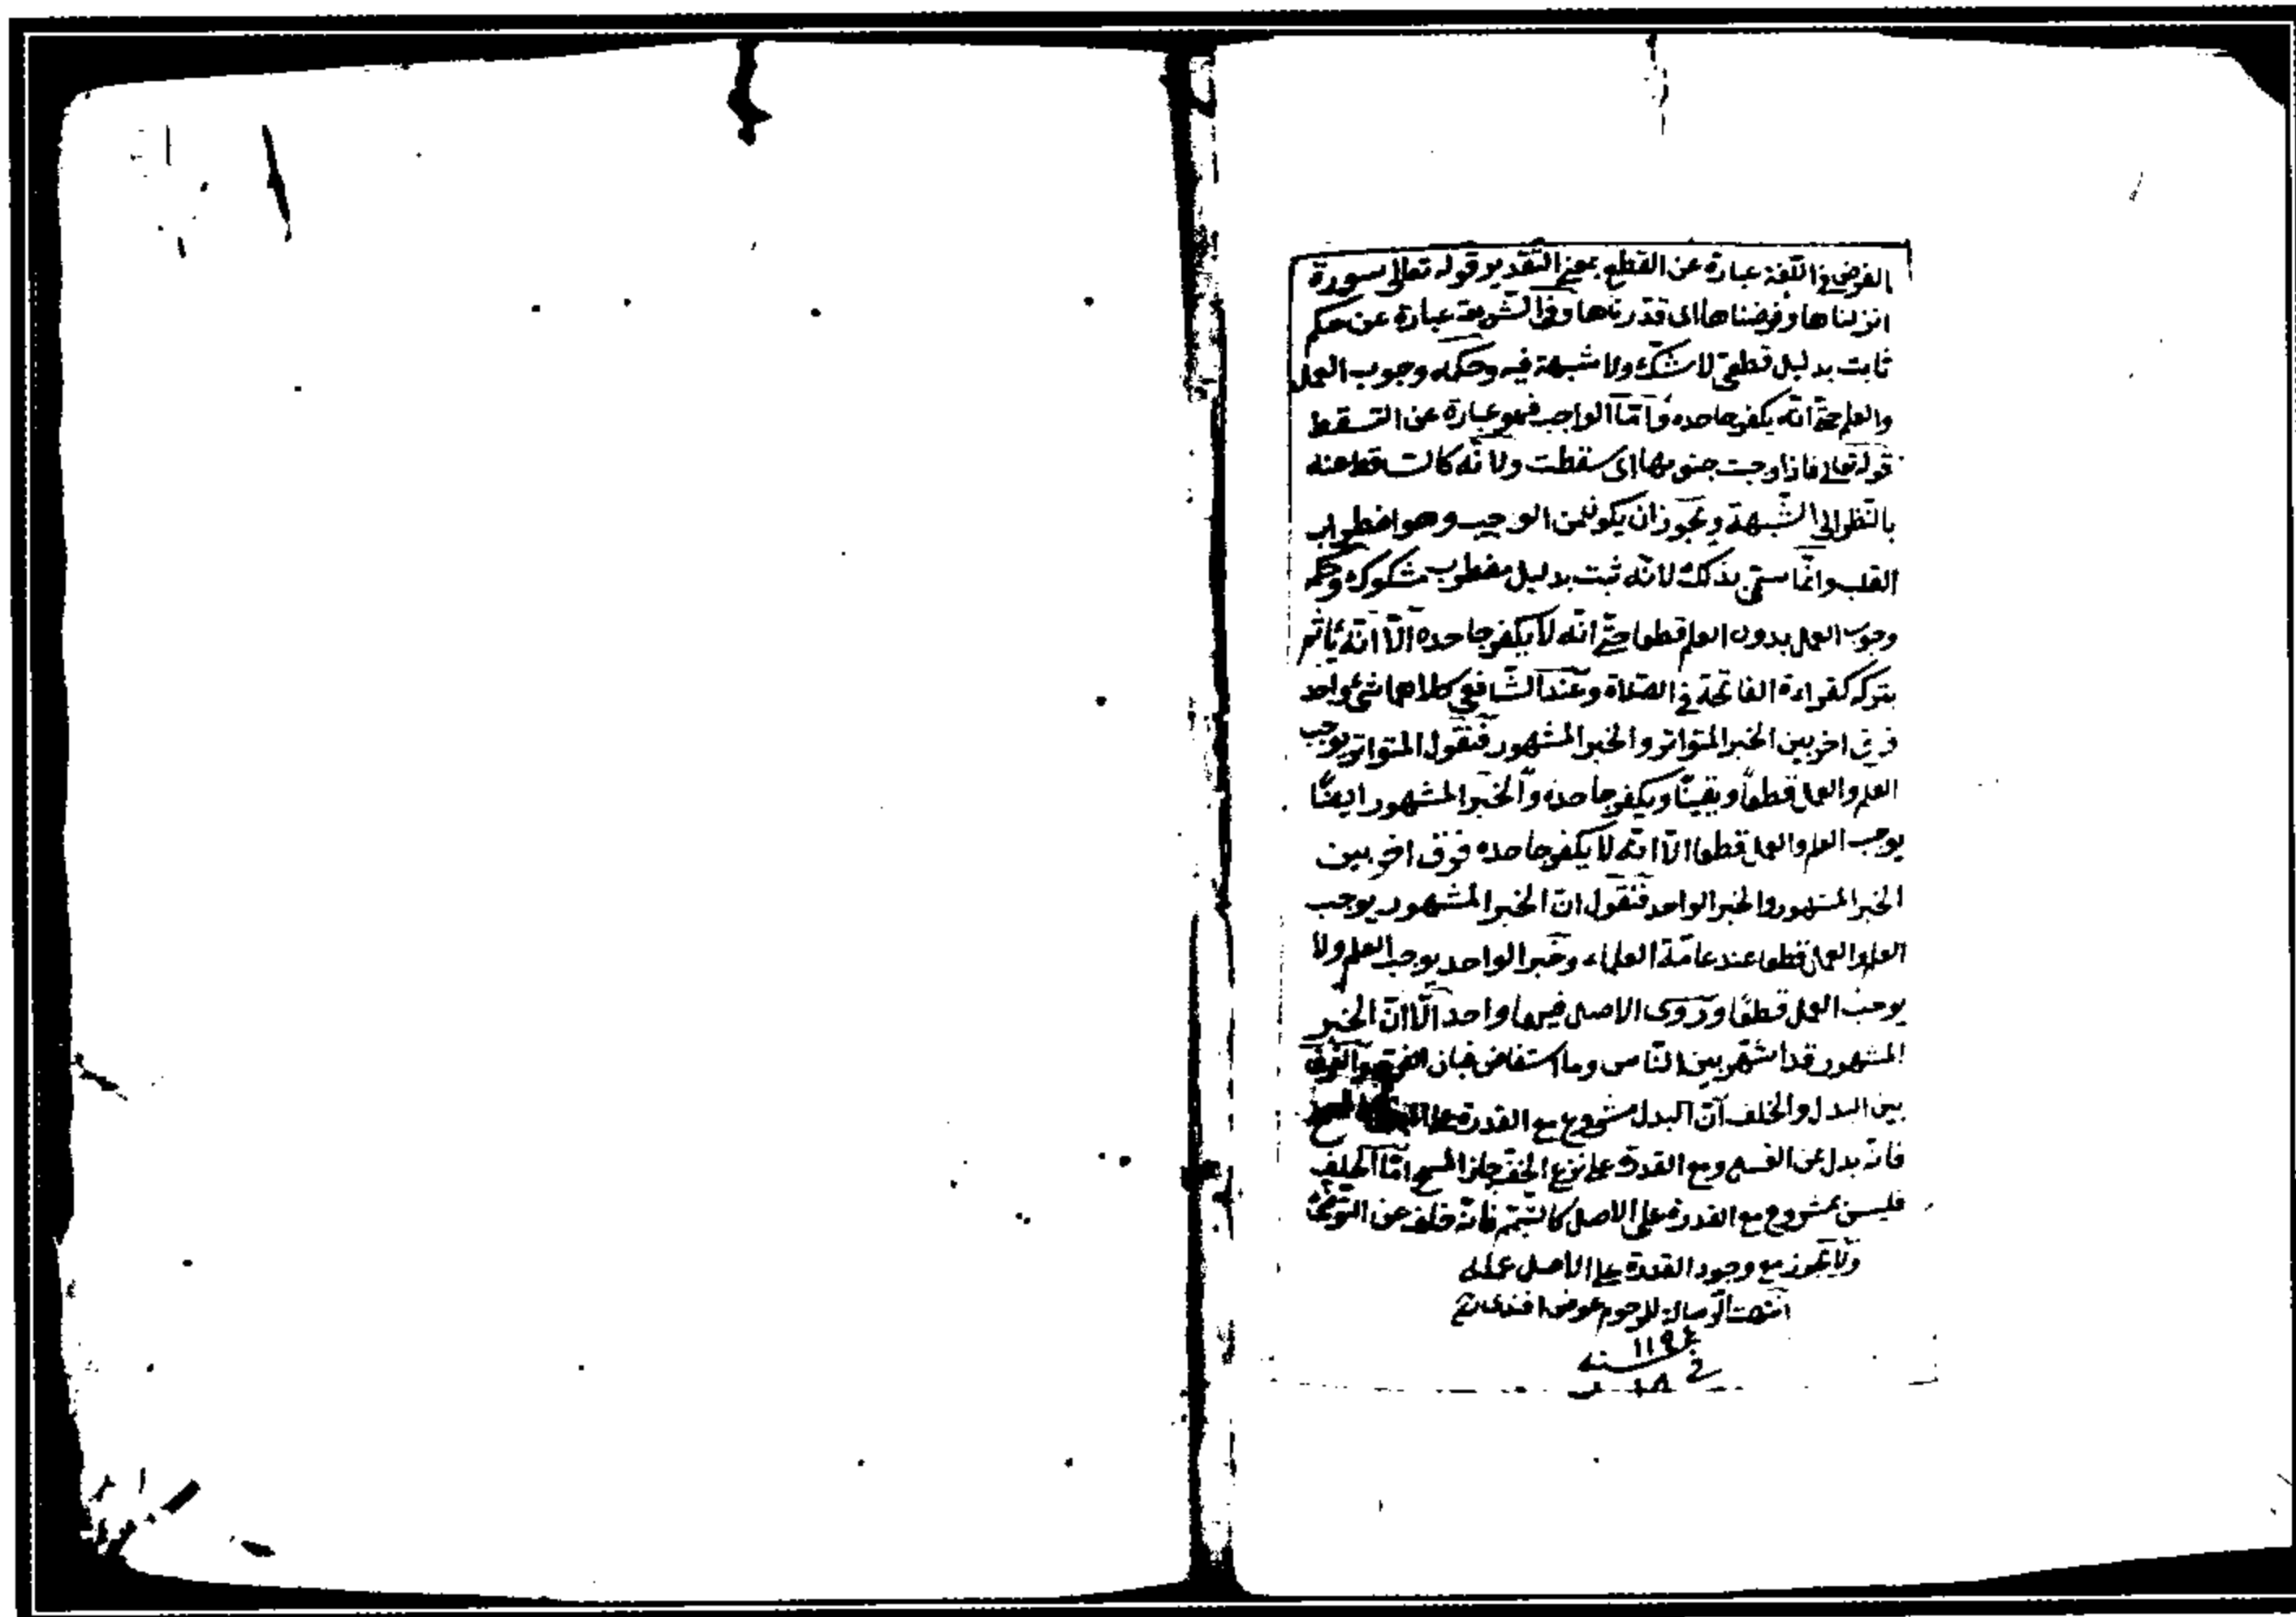 الفرض في اللغة عبارة عن القطع بمعنى التقدير قوله تعالى سورة
انزلناها وفرضناها اى قدرناها وفى الشريعة عبارة عن حكم
ثابت بدليل قطعى لا شك ولا شبهة فيه وحكمه وجوب العمل
والعلم حتى انه يكفر جاحده وامّا الواجب فهو عبارة عن السقط
قوله تعالى فاذا وجبت جنوبها اى سقطت ولانه كالساقط عنه
بالنظر الى الشبهة ويجوز ان يكون من الوجيب وهو اضطراب
القلب وانّما سمّى بذلك لانه ثبت بدليل مضطرب مشكوك وحكمه
وجوب العمل بدون العلم قطعا حتى انه لا يكفر جاحده الّا انّه يأثم
بتركه كقراءة الفاتحة فى الصلاة وعند الشافعى كلاهما شئ واحد
فرق اخر بين الخبر المتواتر والخبر المشهور فنقول المتواتر يوجب
العلم والعمل قطعاً ويقيناً ويكفر جاحده والخبر المشهور ايضًا
يوجب العلم والعمل قطعا الّا انّه لا يكفر جاحده فرق اخر بين
الخبر المشهور والخبر الواحد فنقول انّ الخبر المشهور يوجب
العلم والعمل قطعا عند عامّة العلماء وخبر الواحد يوجب العلم ولا
يوجب العمل قطعًا وروى الاصل فيهما واحد الّا انّ الخبر
المشهور قد اشتهر بين النّاس وما استفاض فبان الفرق والفرق
بين البدل والخلف انّ البدل مشروع مع القدرة على
فانه بدل عن الغسل ومع القدرة على نزع الخف جاز المسح امّا الخلف
فليس بمشروع مع القدرة على الاصل كالتيمّم فانّه خلف عن التوضّئ
ولا يجوز مع وجود القدرة على الاصل عمله
انتهت الرسالة للمرحوم عوض افندى
سنه ١١٩٤
فى